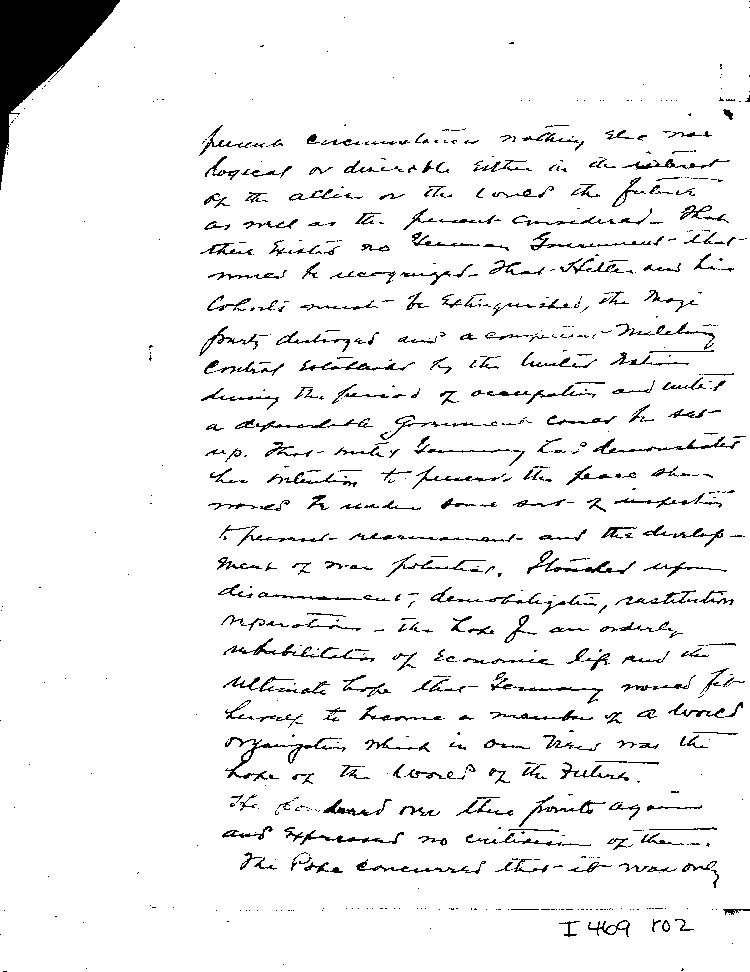 present circumstances nothing else was
logical or desirable either in the interest
of the allies or the world the future
as well as the present considered. That
there existed no German Government that
would be recognized. That Hitler and his
Cohorts must be extinguished, the Nazi
party destroyed and a competent Military
Control established by the United Nations
during the period of occupation and until
a dependable Government could be set
up. That until Germany has demonstrated
her intention to preserve the peace she
would be under some sort of inspection
to prevent rearmament and the develop-
ment of war potential. I touched upon
disarmament, demobilization, restitution
reparations - the hope for an orderly
rehabilitation of Economic life and the
ultimate hope that Germany would fit
herself to become a member of a World
organization which in our view was the
hope of the World of the Future.
He pondered over these points again
and expressed no criticism of them.
The Pope concurred that it was only
I 469 r02